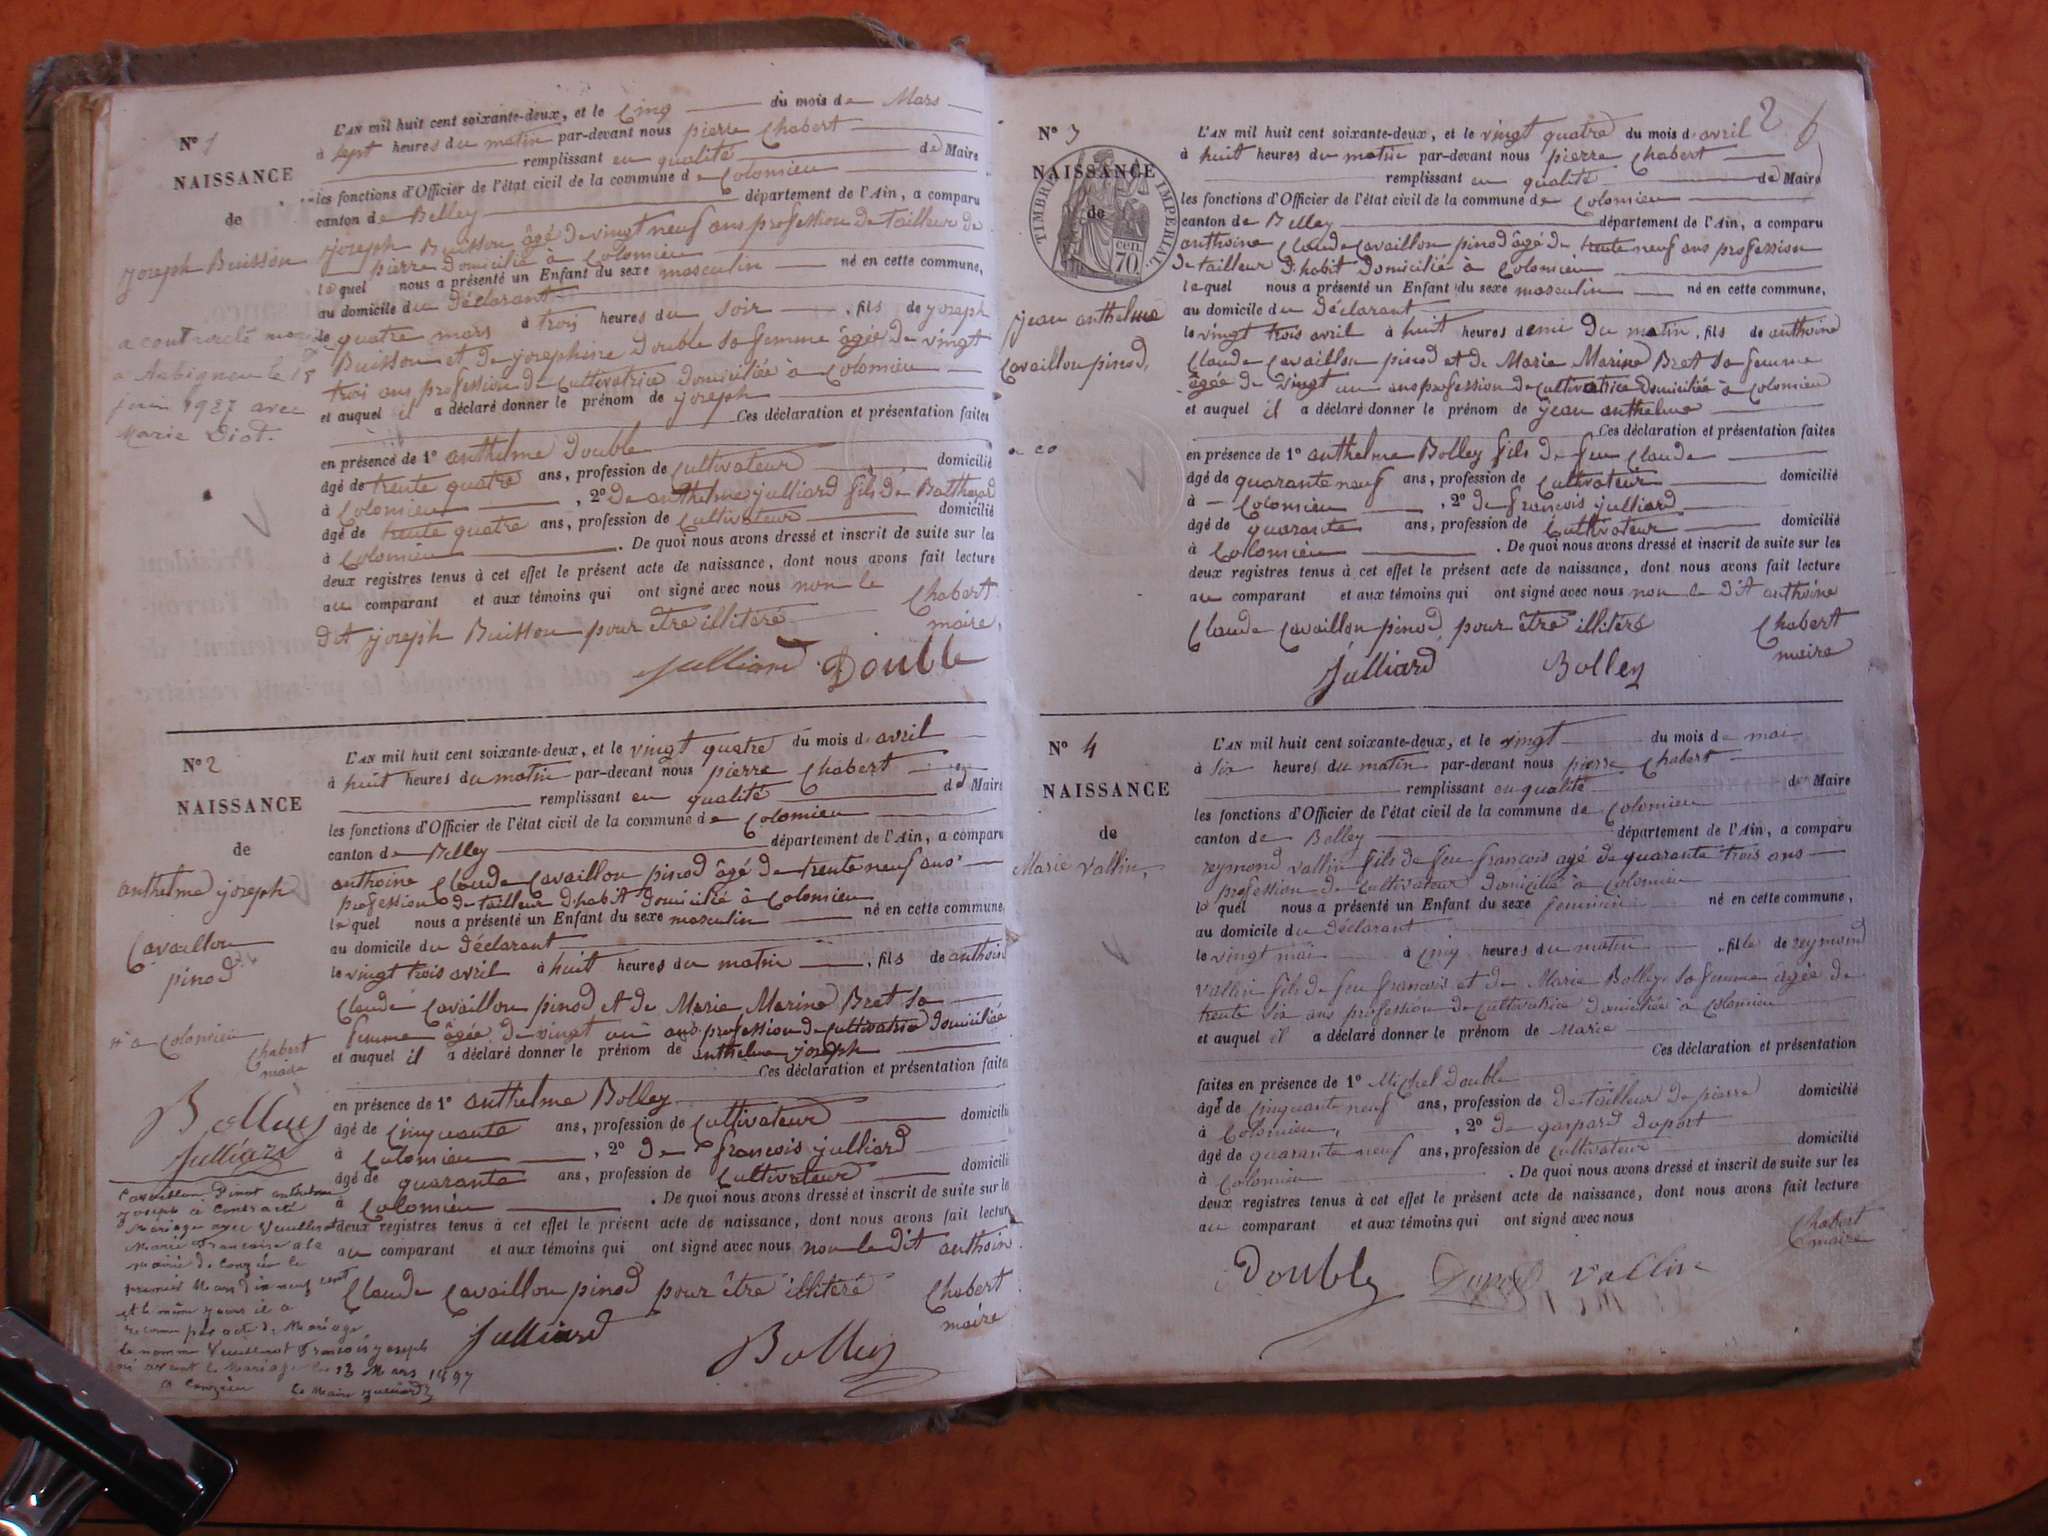 N° 1
NAISSANCE
de
joseph Buisson
a contracté
a Arbignieu le 15
juin 1927 avec
Marie Diot.
L'AN mil huit cent soixante-deux, et le cinq du mois de Mars
à sept heures du matin par-devant nous pierre Chabert
remplissant en qualité de Maire
les fonctions d'Officier de l'état civil de la commune de Colomieu
canton de Belley département de l'Ain, a comparu
joseph Buisson âgé de vingt neuf ans profession de tailleur de
pierre domicilié à Colomieu
lequel nous a présenté un Enfant du sexe masculin né en cette commune,
au domicile du Déclarant
le quatre mars à trois heures du soir, fils de joseph
Buisson et de josephine Double sa femme âgée de vingt
trois ans profession de cultivatrice domiciliée à Colomieu
et auquel il a déclaré donner le prénom de joseph
Ces déclaration et présentation faites
en présence de 1° anthelme Double
âgé de trente quatre ans, profession de cultivateur domicilié
à Colomieu, 2° De anthelme julliard fils de
âgé de trente quatre ans, profession de cultivateur domicilié
à Colomieu. De quoi nous avons dressé et inscrit de suite sur les
deux registres tenus à cet effet le présent acte de naissance, dont nous avons fait lecture
au comparant et aux témoins qui ont signé avec nous non le
Dit joseph Buisson pour être illitéré
Chabert
maire,
Julliard Double
N° 2
NAISSANCE
de
anthelme joseph
Cavaillon
pinod
à Colomieu
Chabert
maire
Bolley
Julliard
Cavaillon Pinot anthelme
joseph à contracté
Mariage avec
Marie Francoise a la
mairie de Conzieu le
et le même jours il a
reconnu par acte de Mariage
le nommé François joseph
né avant le Mariage le 13 Mars 1897
a Conzieu le Maire
L'AN mil huit cent soixante-deux, et le vingt quatre du mois d'avril
à huit heures du matin par-devant nous pierre Chabert
remplissant en qualité de Maire
les fonctions d'Officier de l'état civil de la commune de Colomieu
canton de Belley département de l'Ain, a comparu
anthoine Claude Cavaillon pinod âgé de trente neuf ans
profession de tailleur d'habit domicilié à Colomieu
lequel nous a présenté un Enfant du sexe masculin né en cette commune,
au domicile du Déclarant
le vingt trois avril à huit heures du matin, fils de anthoin
Claude Cavaillon pinod et de Marie Marine Bret sa
femme âgée de vingt un ans profession de cultivatrice domiciliée
et auquel il a déclaré donner le prénom de anthelme joseph
Ces déclaration et présentation faites
en présence de 1° anthelme Bolley
âgé de cinquante ans, profession de cultivateur domicilié
à Colomieu, 2° de francois julliard
âgé de quarante ans, profession de cultivateur domicilié
à Colomieu. De quoi nous avons dressé et inscrit de suite sur les
deux registres tenus à cet effet le présent acte de naissance, dont nous avons fait lecture
au comparant et aux témoins qui ont signé avec nous non le dit anthoin
Claude Cavaillon pinod pour être illitéré
Chabert
maire
Julliard
Bolley
2
N° 3
NAISSANCE
de
TIMBRE IMPERIAL
70 cen.
jean anthelme
Cavaillon pinod,
L'AN mil huit cent soixante-deux, et le vingt quatre du mois d'avril
à huit heures du matin par-devant nous pierre Chabert
remplissant en qualité de Maire
les fonctions d'Officier de l'état civil de la commune de Colomieu
canton de Belley département de l'Ain, a comparu
anthoine Claude Cavaillon pinod âgé de trente neuf ans profession
de tailleur d'habit domicilié à Colomieu
lequel nous a présenté un Enfant du sexe masculin né en cette commune,
au domicile du Déclarant
le vingt trois avril à huit heures demi du matin, fils de anthoine
Claude Cavaillon pinod et de Marie Marine Bret sa femme
âgée de vingt un ans profession de cultivatrice domiciliée à Colomieu
et auquel il a déclaré donner le prénom de jean anthelme
Ces déclaration et présentation faites
en présence de 1° anthelme Bolley fils de feu Claude
âgé de quarante neuf ans, profession de cultivateur domicilié
à Colomieu, 2° de francois julliard
âgé de quarante ans, profession de cultivateur domicilié
à Colomieu. De quoi nous avons dressé et inscrit de suite sur les
deux registres tenus à cet effet le présent acte de naissance, dont nous avons fait lecture
au comparant et aux témoins qui ont signé avec nous non le dit anthoine
Claude Cavaillon pinod pour être illitéré
Chabert
maire
Julliard
Bolley
N° 4
NAISSANCE
de
Marie Vallin,
L'AN mil huit cent soixante-deux, et le vingt du mois de mai
à six heures du matin par-devant nous pierre Chabert
remplissant en qualité de Maire
les fonctions d'Officier de l'état civil de la commune de Colomieu
canton de Belley département de l'Ain, a comparu
reymond vallin fils de feu francois agé de quarante trois ans
profession de cultivateur domicilié à Colomieu
lequel nous a présenté un Enfant du sexe feminin né en cette commune,
au domicile du Déclarant
le vingt mai à cinq heures du matin, fille de reymond
vallin fils de feu francois et de Marie Bolley sa femme âgée de
trente six ans profession de cultivatrice domiciliée à Colomieu
et auquel il a déclaré donner le prénom de Marie
Ces déclaration et présentation
faites en présence de 1° Michel Double
âgé de cinquante neuf ans, profession de tailleur de pierre domicilié
à Colomieu, 2° de gaspard duport
âgé de quarante neuf ans, profession de cultivateur domicilié
à Colomieu. De quoi nous avons dressé et inscrit de suite sur les
deux registres tenus à cet effet le présent acte de naissance, dont nous avons fait lecture
au comparant et aux témoins qui ont signé avec nous
Chabert
maire
Double Duport Vallin